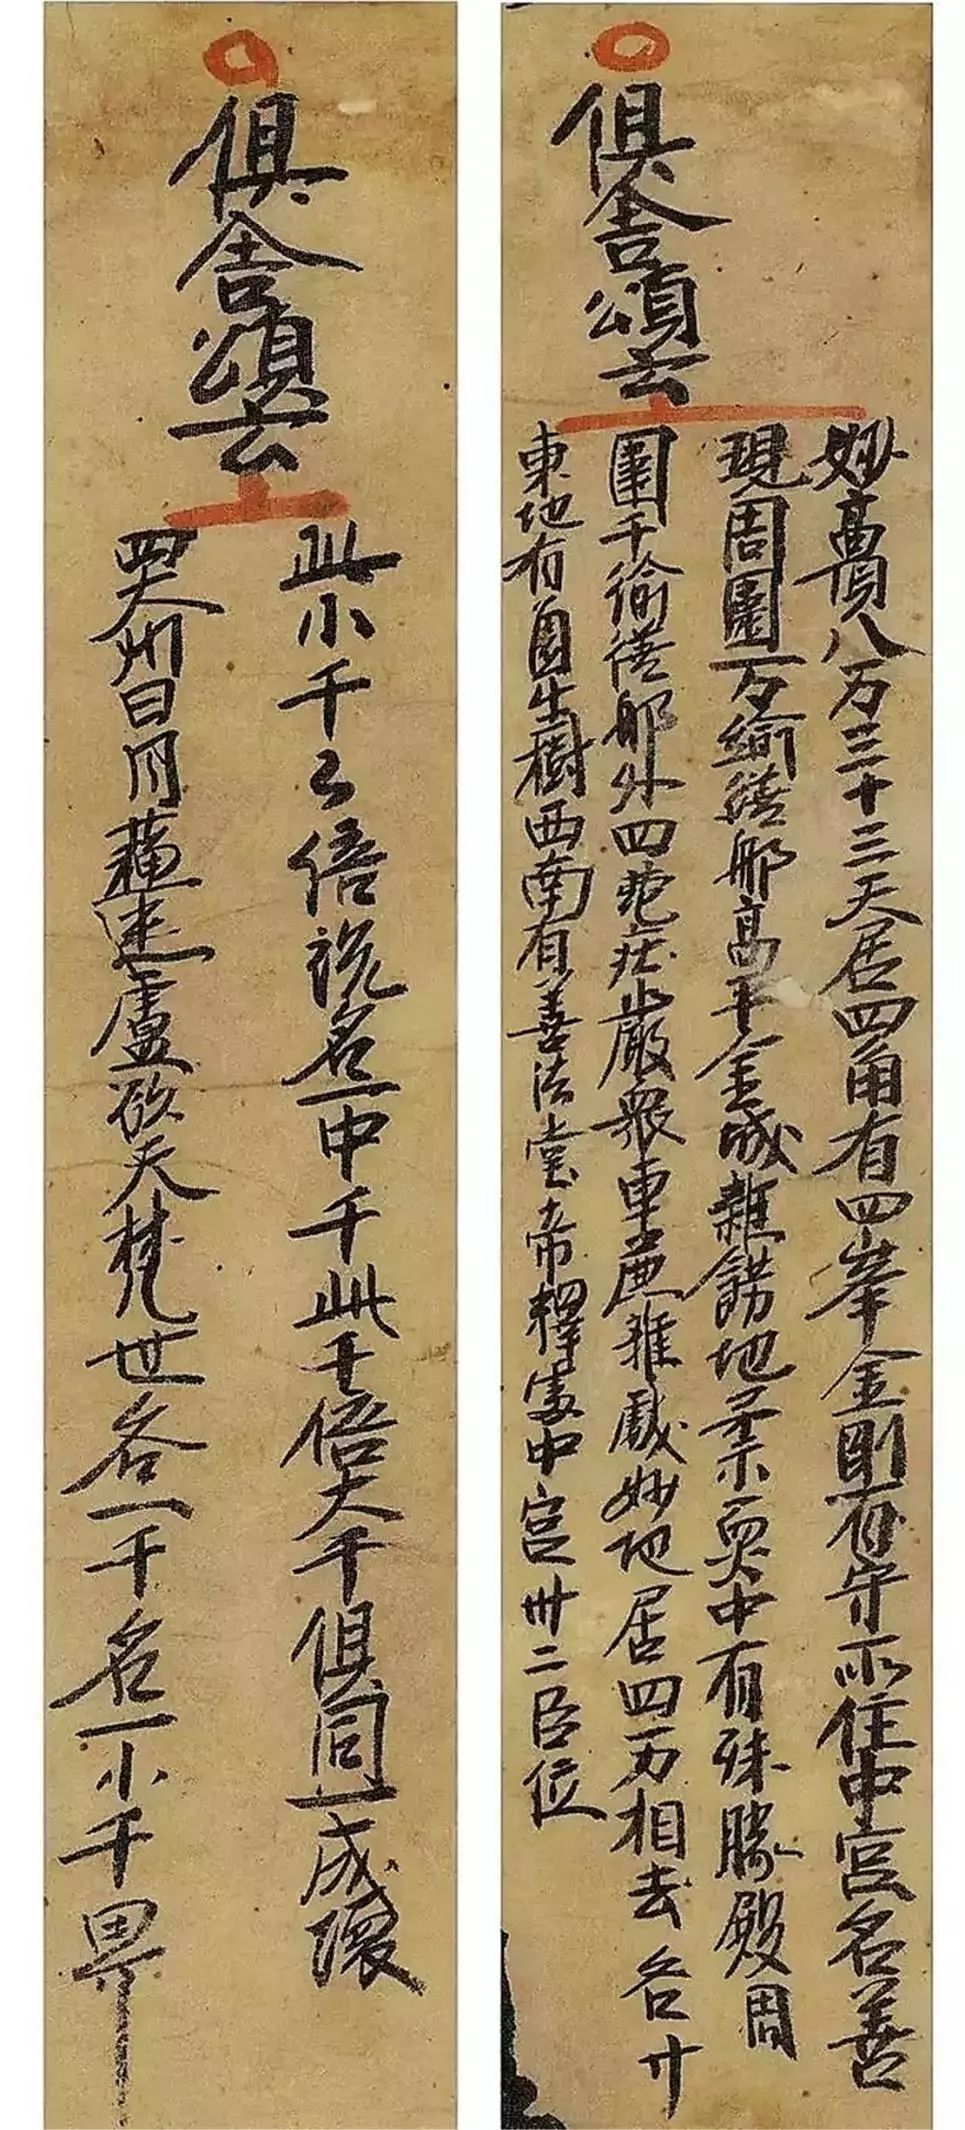 俱舍頌云
妙高頂八万三十三天居四角有四峯金剛有守所住中宮名善
現周圍万綸繕那高半金城雜飾地柔耎中有殊勝殿周
圍千偷繕那外四苑庄嚴眾車麁雜戲妙地居四方相去各廿
東地有圓生樹西南有善法堂帝釋處中宮卅二臣位
俱舍頌云
四大州日月蘓迷盧欲天梵世各一千名一小千界
此小千〻倍說名一中千此千倍大千俱同一成壞